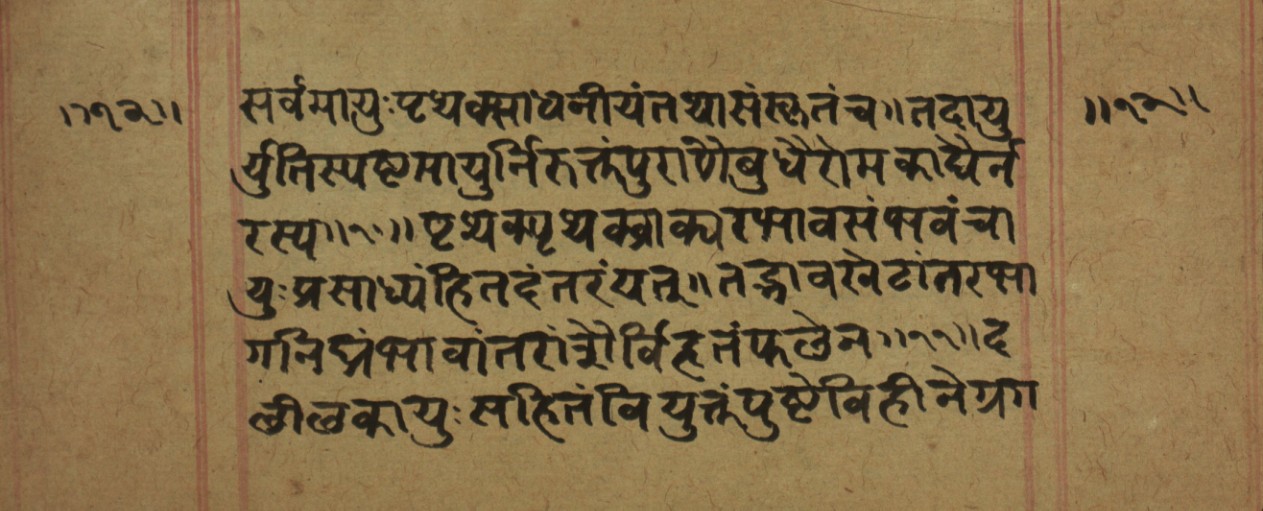 ॥१२॥ सर्वमायुःपृथक्साधनीयंतथासंस्कृतंच॥तदायु ॥१२॥
र्युतिस्पष्टमायुर्निरुक्तंपुराणैबुधैरोमकाद्यैर्न
रस्य॥१०॥पृथक्पृथक्वाक्परभावसंभवंचा
युःप्रसाध्यंहितदंतरंयत्॥तद्भावखेटांतरभा
गनिघ्नंभावांतरांशैर्विहृतंफलेन॥११॥द
लीलकायुःसहितंवियुक्तंपुष्टेविहीनेग्रग